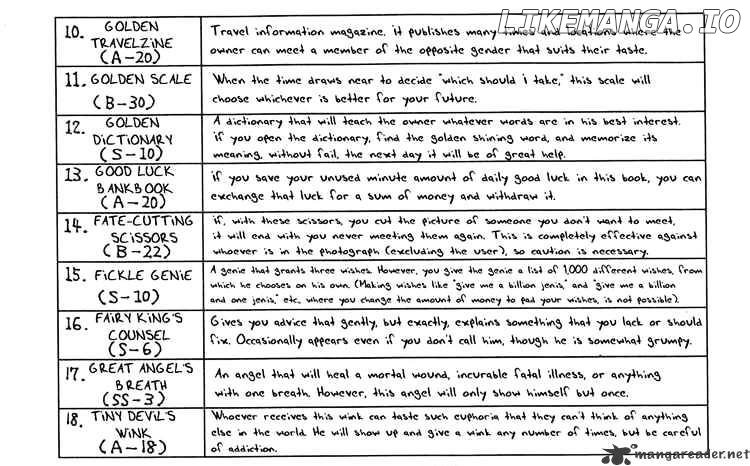 LIKEMANGA.IO
10. GOLDEN
TRAVELZINE
(A-20)
Travel information magazine. it publishes many times and locations where the
owner can meet a member of the opposite gender that suits their taste.
11. GOLDEN SCALE
(B-30)
When the time draws near to decide "which should i take," this scale will
choose whichever is better for your future.
12. GOLDEN
DICTIONARY
(S-10)
A dictionary that will teach the owner whatever words are in his best interest.
if you open the dictionary, find the golden shining word, and memorize its
meaning, without fail, the next day it will be of great help.
13. GOOD LUCK
BANKBOOK
(A-20)
if you save your unused minute amount of daily good luck in this book, you can
exchange that luck for a sum of money and withdraw it.
14. FATE-CUTTING
SCISSORS
(B-22)
if, with these scissors, you cut the picture of someone you don't want to meet,
it will end with you never meeting them again. This is completely effective against
whoever is in the photograph (excluding the user), so caution is necessary.
15. FICKLE GENIE
(S-10)
A genie that grants three wishes. However, you give the genie a list of 1,000 different wishes, from
which he chooses on his own. (Making wishes like "give me a billion jenis," and "give me a billion
and one jenis," etc. where you change the amount of money to pad your wishes, is not possible).
16. FAIRY KING'S
COUNSEL
(S-6)
Gives you advice that gently, but exactly, explains something that you lack or should
fix. Occasionally appears even if you don't call him, though he is somewhat grumpy.
17. GREAT ANGEL'S
BREATH
(SS-3)
An angel that will heal a mortal wound, incurable fatal illness, or anything
with one breath. However, this angel will only show himself but once.
18. TINY DEVIL'S
WINK
(A-18)
Whoever receives this wink can taste such euphoria that they can't think of anything
else in the world. He will show up and give a wink any number of times, but be careful
of addiction.
mangareader.net